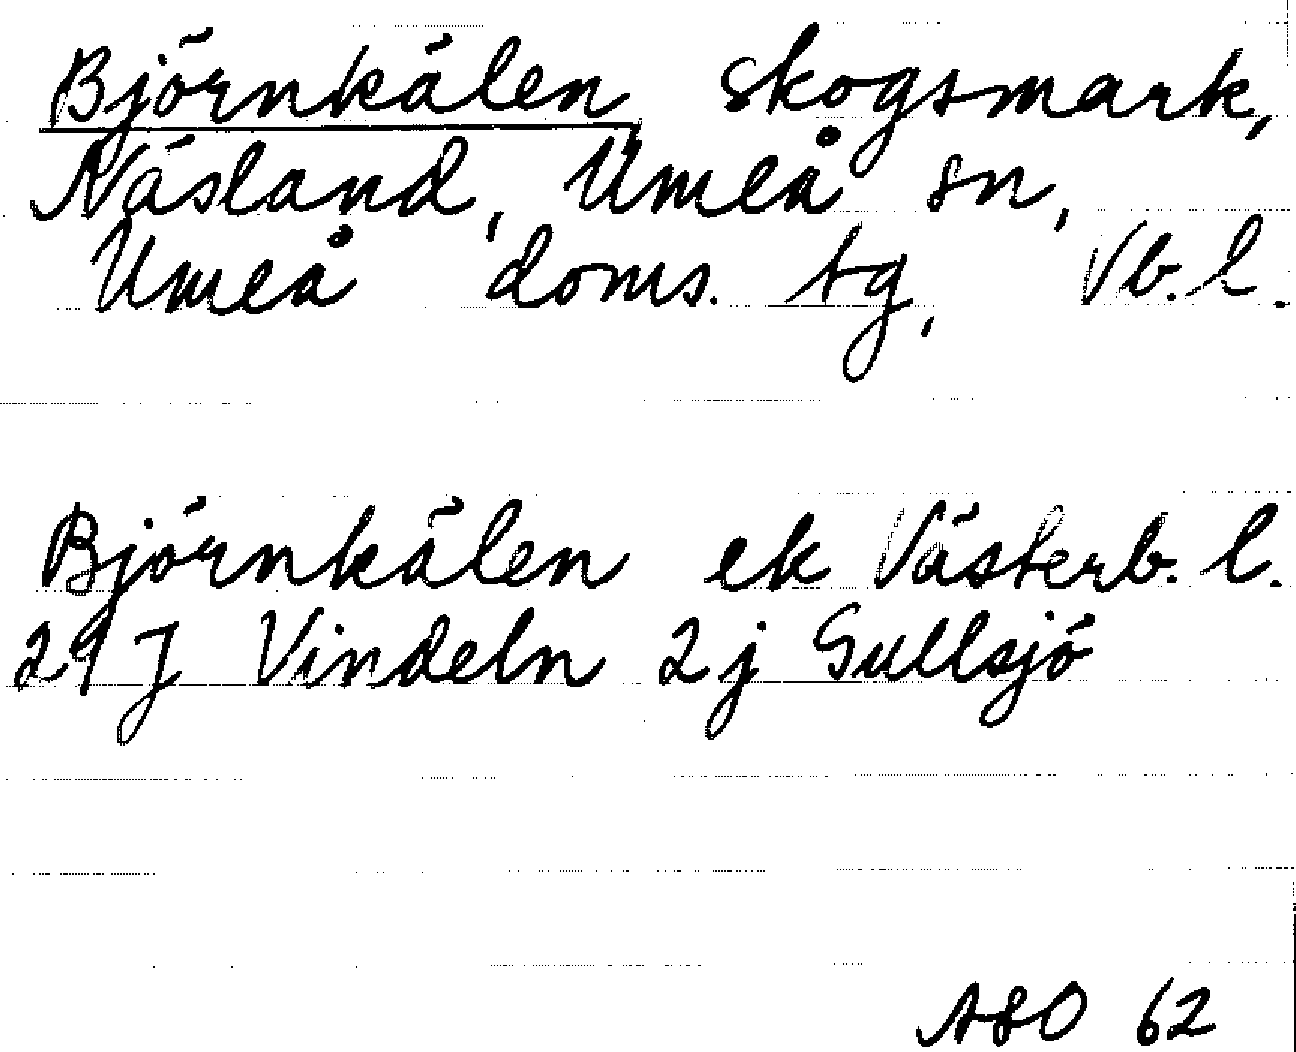 Björnkälen, skogsmark,
Näsland, Umeå sn,
Umeå doms. tg, Vb. l.
Björnkälen ek Västerb. l.
29 J Vindeln 2j Gullsjö
ASO 62